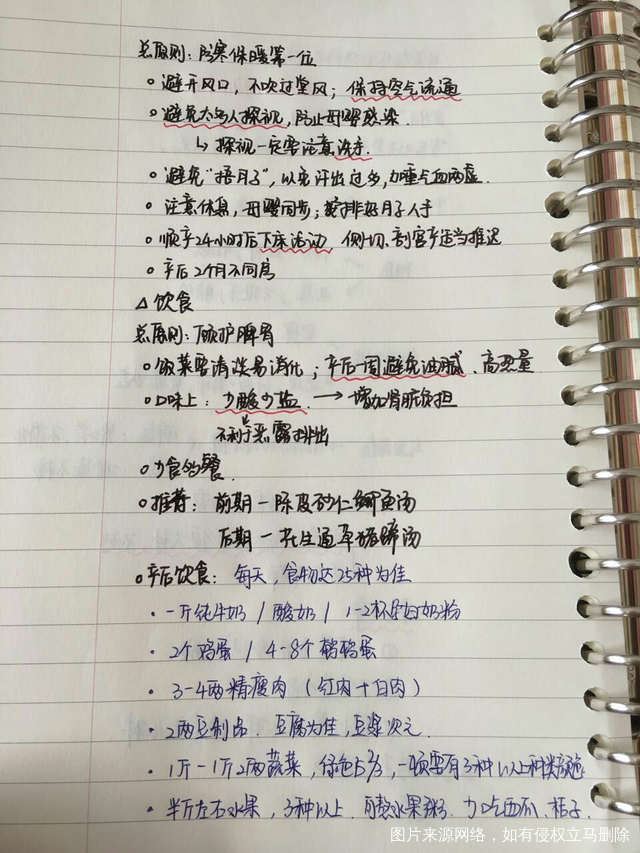 总原则：防寒保暖第一位
○避开风口，不吹过堂风；保持空气流通
○避免太多人探视，防止母婴感染．
↳ 探视一定要注意洗手．
○避免“捂月子”，以免汗出过多，加重气血两虚．
○注意休息，母婴同步；安排好月子人手
○顺产24小时后下床活动，侧切、剖宫产适当推迟
○产后2个月不同房
△饮食
总原则：顾护脾胃
○饭菜要清淡易消化；产后一周避免油腻、高热量
○口味上：少酸少盐．→增加肾脏负担
不利于恶露排出
○少食多餐．
○推荐：前期—陈皮砂仁鲫鱼汤
后期—花生通草猪蹄汤
○产后饮食：每天，食物达25种为佳
·一斤纯牛奶／酸奶／1-2杯孕妇奶粉
·2个鸡蛋／4-8个鹌鹑蛋
·3-4两精瘦肉（红肉＋白肉）
·2两豆制品．豆腐为佳，豆浆次元．
·1斤-1斤2两蔬菜，绿色占2/3，一顿要有3种以上种类颜色
·半斤左右水果，3种以上．可熬水果粥．少吃西瓜、桔子．
图片来源网络，如有侵权立马删除